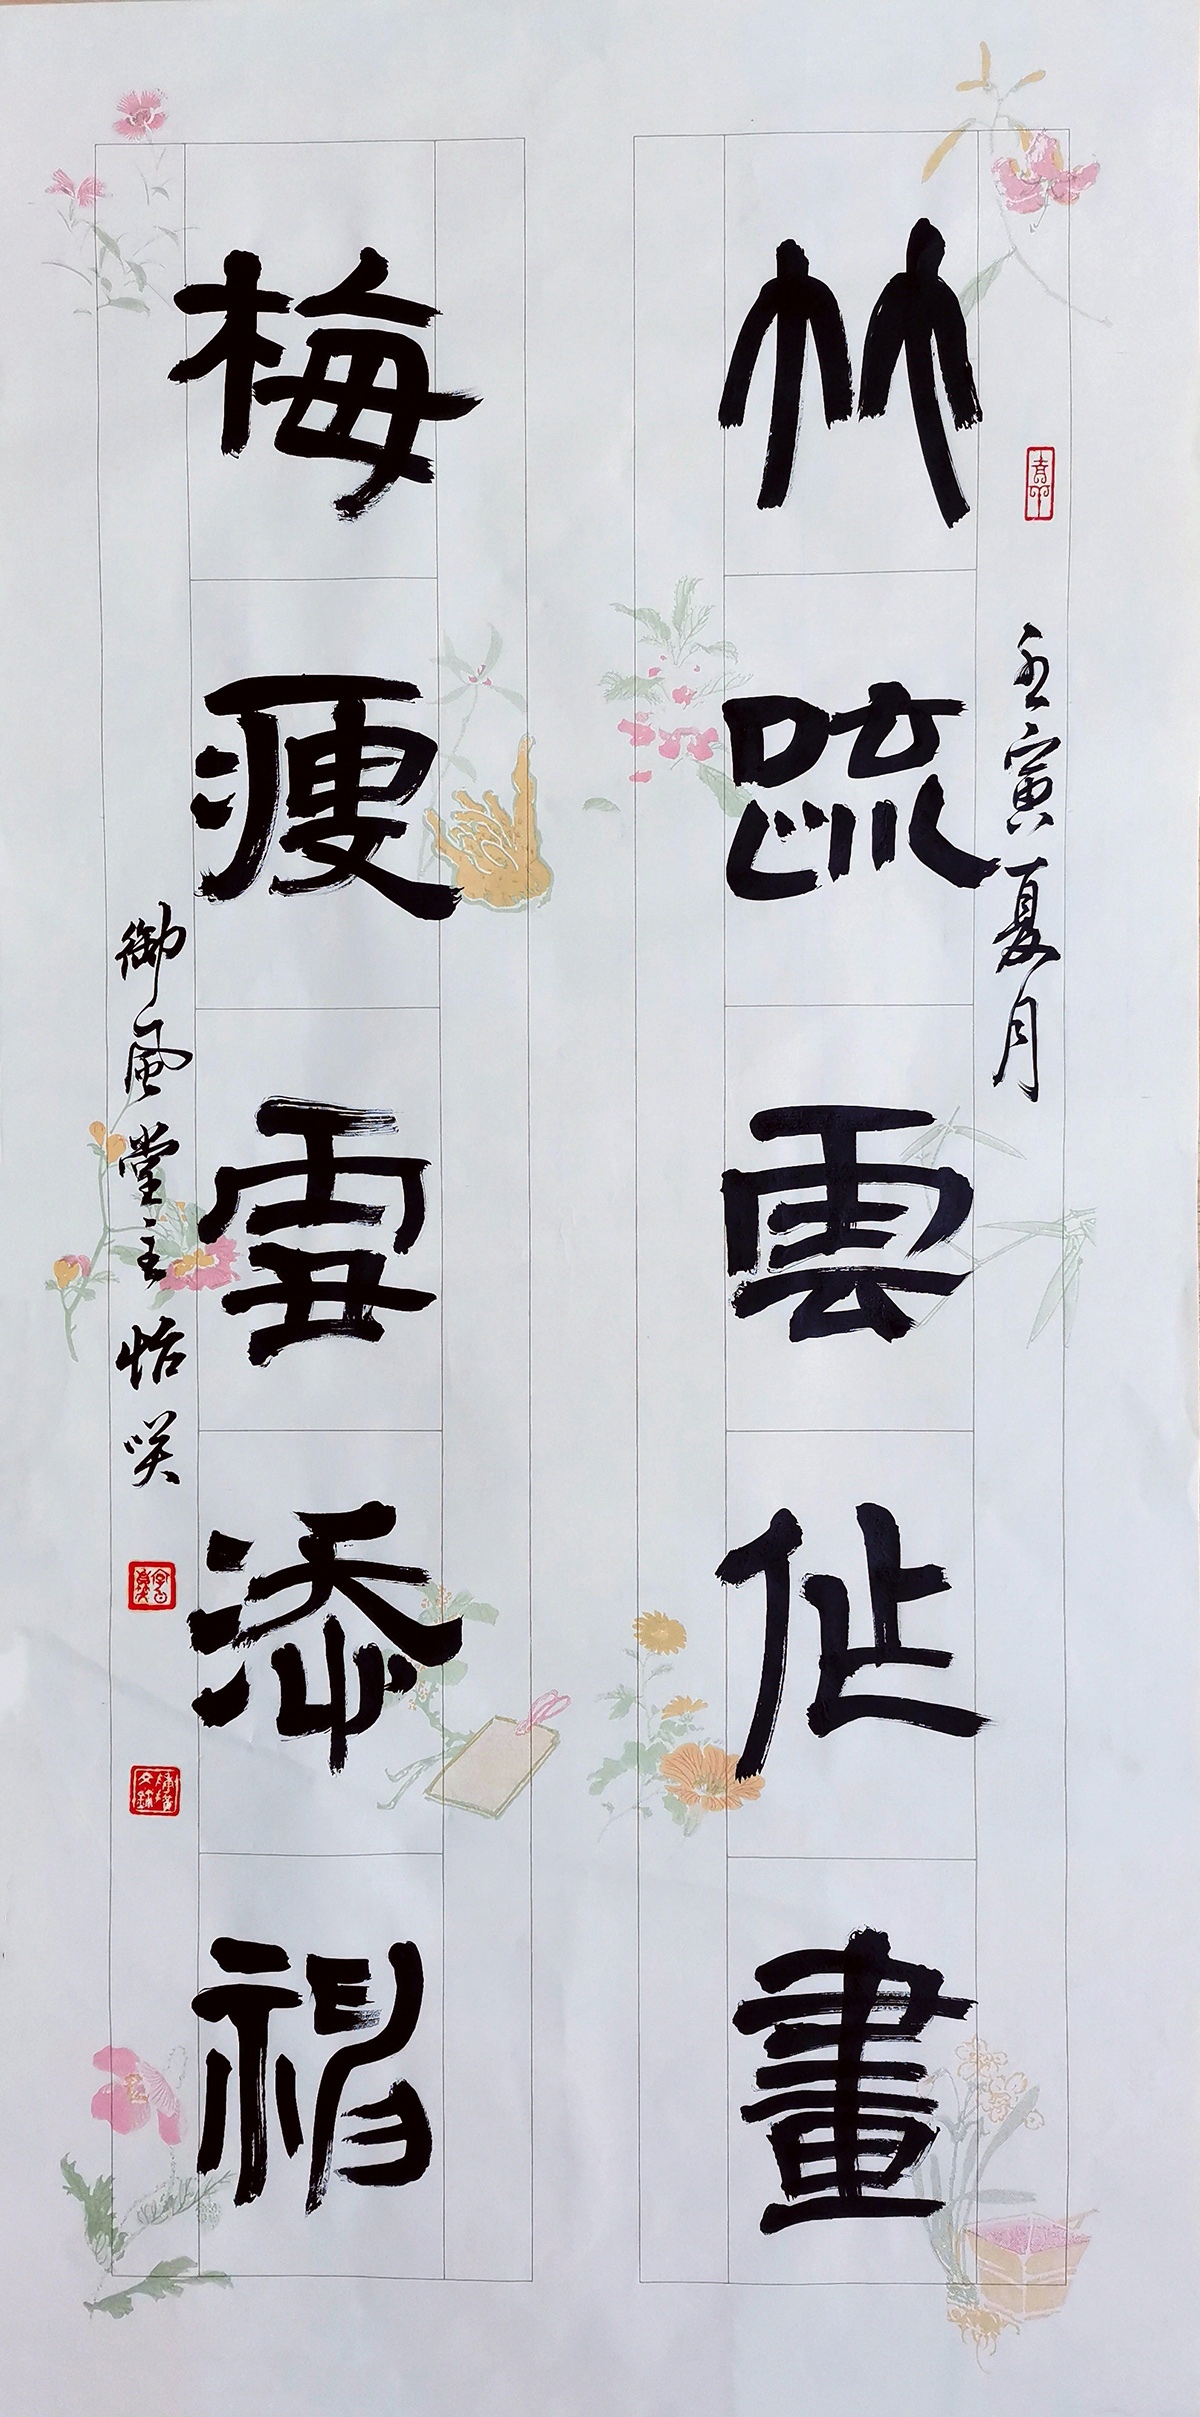 竹疏雲作畫
壬寅夏月
梅瘦雪添神
御風堂主怡笑